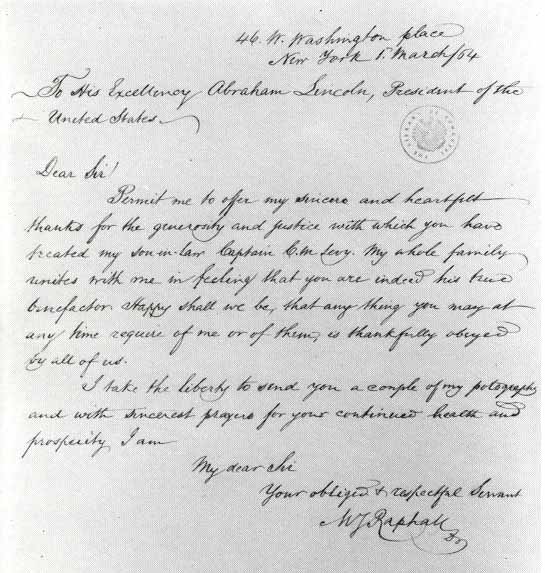 46. W. Washington place
New York 1. March/64
To His Excellency Abraham Lincoln, President of the
United States
Dear Sir!
Permit me to offer my sincere and heartfelt
thanks for the generosity and justice with which you have
treated my son-in-law Captain C. M. Levy. My whole family
unites with me in feeling that you are indeed his true
benefactor. Happy shall we be, that any thing you may at
any time require of me or of them, is thankfully obeyed
by all of us.
I take the liberty to send you a couple of my potographs
and with sincerest prayers for your continued health and
prosperity I am
My dear Sir
Your obliged & respectful Servant
M J Raphall